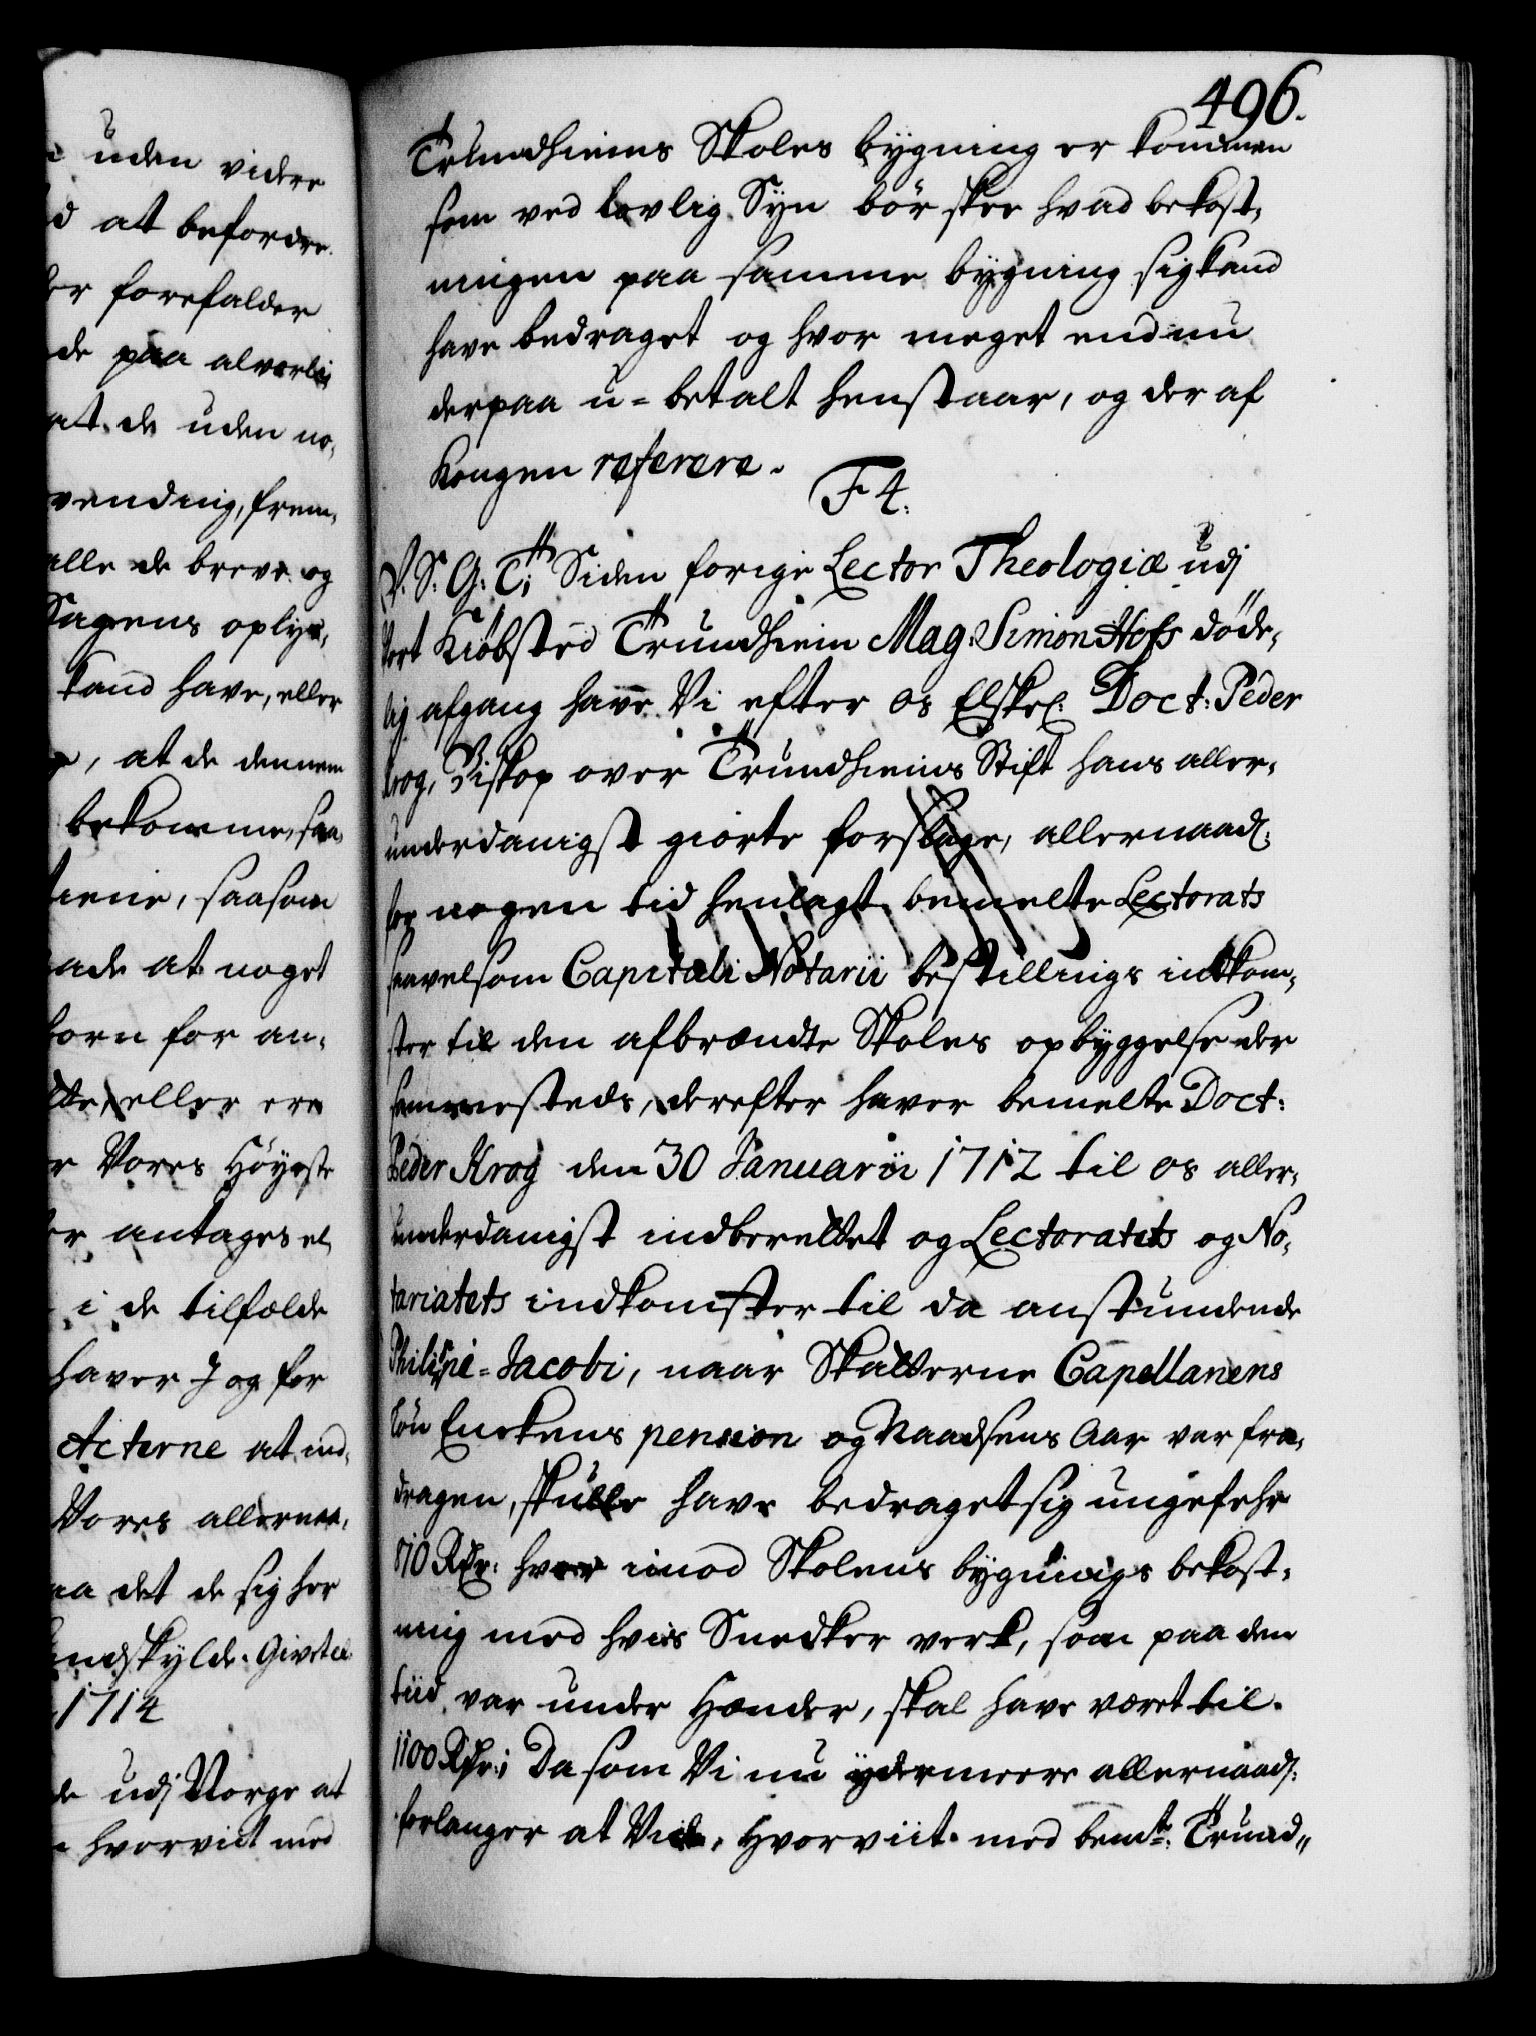 uden videre
at befordre.
forefalder
de paa alvorli
at de uden no,
vending, frem,
alle de breve og
Sagens oplys,
kand have, eller
, at de dennem
bekomme, saa
tiene, saasom
at noget
for an,
eller ere
Vores Höyeste
antages el,
i de tilfælde
haver J og for
Acterne at ind,
Vores allernaa,
det de sig her
undskylde. Givet
1714
udj Norge at
hvorviit med
496.
Trundhiems Skoles bygning er kommen
som ved lovlig Syn bör skee hvad bekost,
ningen paa samme bygning sig kand
have bedraget og hvor meget endnu
derpaa u=betalt henstaar, og der af
Kongen referere.
F 4.
V. S. G. T: Siden forige Lector Theologiæ udj
Vort Kiöbsted Trundhiem Mag: Simon Hofs döde,
lig afgang have Vi efter os Elskel: Doct: Peder
Krog, Biskop over Trundhiems Stift hans aller,
underdanigst giorte forslage, allernaad:
for nogen tid henlagt bemelte Lectorats
saavelsom Capituli Notarii bestillings indkom,
ster til den afbrændte Skoles opbyggelse der
sammesteds, derefter haver bemelte Doct:
Peder Krog den 30 Januarii 1712 til os aller,
underdanigst indberettet og Lectoratets og No,
tariatets indkomster til da anstundende
Philippi=Jacobi, naar Skatterne Capellanens
Lön Enckens pension og Naadsens Aar var fra,
dragen, skulle have bedraget sig ungefehr
810 Rdr: hver imod Skolens bygnings bekost,
ning med hvis Snedker verk, som paa den
tiid var under Hænder, skal have været til.
1100 Rdr: Da som Vi nu ydermeere allernaads:
forlanger at Vide, Hvorviit med bemte: Trund,,